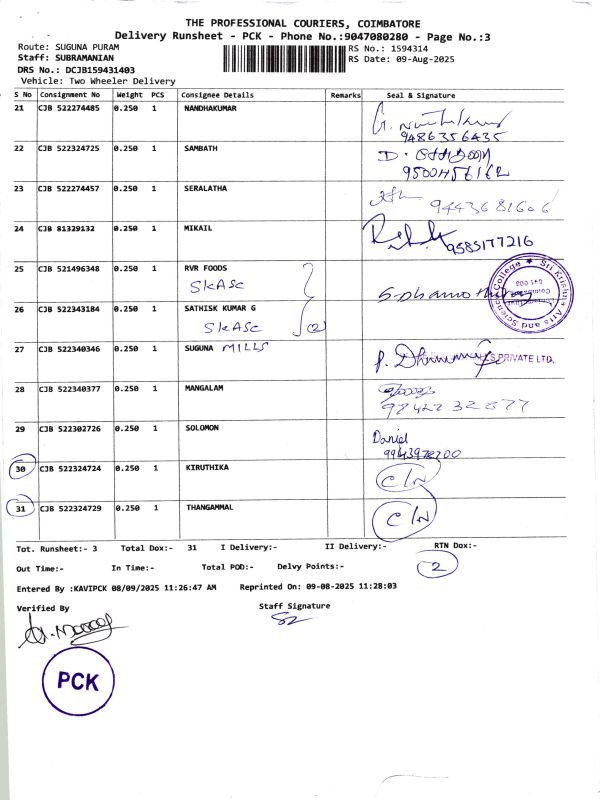 THE PROFESSIONAL COURIERS, COIMBATORE
Delivery Runsheet - PCK - Phone No.:9047080280 - Page No.:3
Route: SUGUNA PURAM
RS No.: 1594314
Staff: SUBRAMANIAN
RS Date: 09-Aug-2025
DRS No.: DCJB159431403
Vehicle: Two Wheeler Delivery
S No Consignment No Weight PCS Consignee Details Remarks Seal & Signature
21 CJB 522274485 0.250 1 NANDHAKUMAR
9486356435
22 CJB 522324725 0.250 1 SAMBATH
23 CJB 522274457 0.250 1 SERALATHA
9443681606
24 CJB 81329132 0.250 1 MIKAIL
9585177216
25 CJB 521496348 0.250 1 RVR FOODS
SKASC
26 CJB 522343184 0.250 1 SATHISK KUMAR G
SKASC (2)
Sri Krishna Arts and Science College
27 CJB 522340346 0.250 1 SUGUNA MILLS
S PRIVATE LTD.
28 CJB 522340377 0.250 1 MANGALAM
29 CJB 522302726 0.250 1 SOLOMON
Daniel
30 CJB 522324724 0.250 1 KIRUTHIKA
C/N
31 CJB 522324729 0.250 1 THANGAMMAL
C/N
Tot. Runsheet:- 3 Total Dox:- 31 I Delivery:- II Delivery:- RTN Dox:-
Out Time:- In Time:- Total POD:- Delvy Points:- 2
Entered By :KAVIPCK 08/09/2025 11:26:47 AM Reprinted On: 09-08-2025 11:28:03
Verified By
Staff Signature
PCK